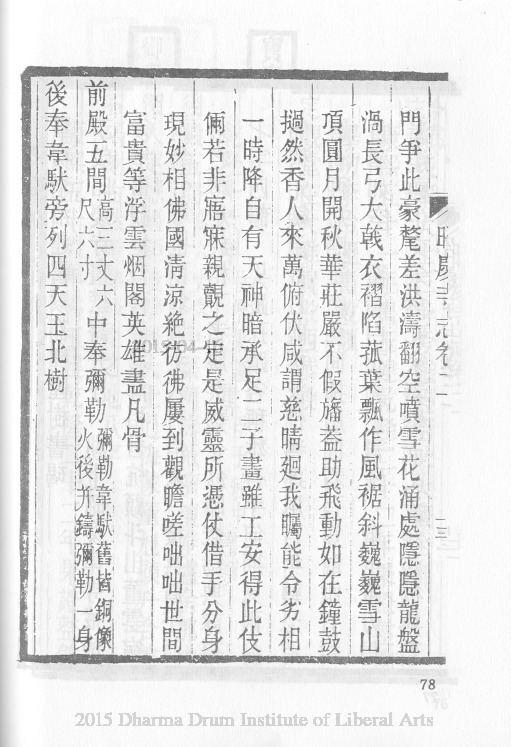 昭慶寺志卷二
三
門爭此豪氂差洪濤翻空噴雪花涌處隱隱龍盤
渦長弓大戟衣褶陷菰葉飄作風裾斜巍巍雪山
頂圓月開秋華莊嚴不假旛葢助飛動如在鐘鼓
撾然香人來萬俯伏咸謂慈睛迴我矚能令劣相
一時降自有天神暗承足二子畫雖工安得此伎
倆若非寤寐親覿之定是威靈所憑仗借手分身
現妙相佛國清涼絶彷彿屢到觀瞻嗟咄咄世間
富貴等浮雲烟閣英雄盡凡骨
前殿五間高三丈六尺六寸中奉彌勒彌勒韋馱舊皆銅像火後并鑄彌勒一身
後奉韋馱旁列四天王北樹
78
2015 Dharma Drum Institute of Liberal Arts